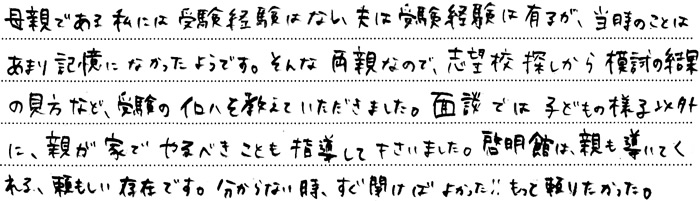 母親である私には受験経験はない、夫は受験経験は有るが、当時のことは
あまり記憶になかったようです。そんな両親なので、志望校探しから模討の結果
の見方など、受験のイロハを教えていただきました。面談では子どもの様子以外
に、親が家でやるべきことも指導して下さいました。啓明館は、親も導いてく
れる、頼もしい存在です。分からない時、すぐ聞けばよかった!!もっと頼りたかった。